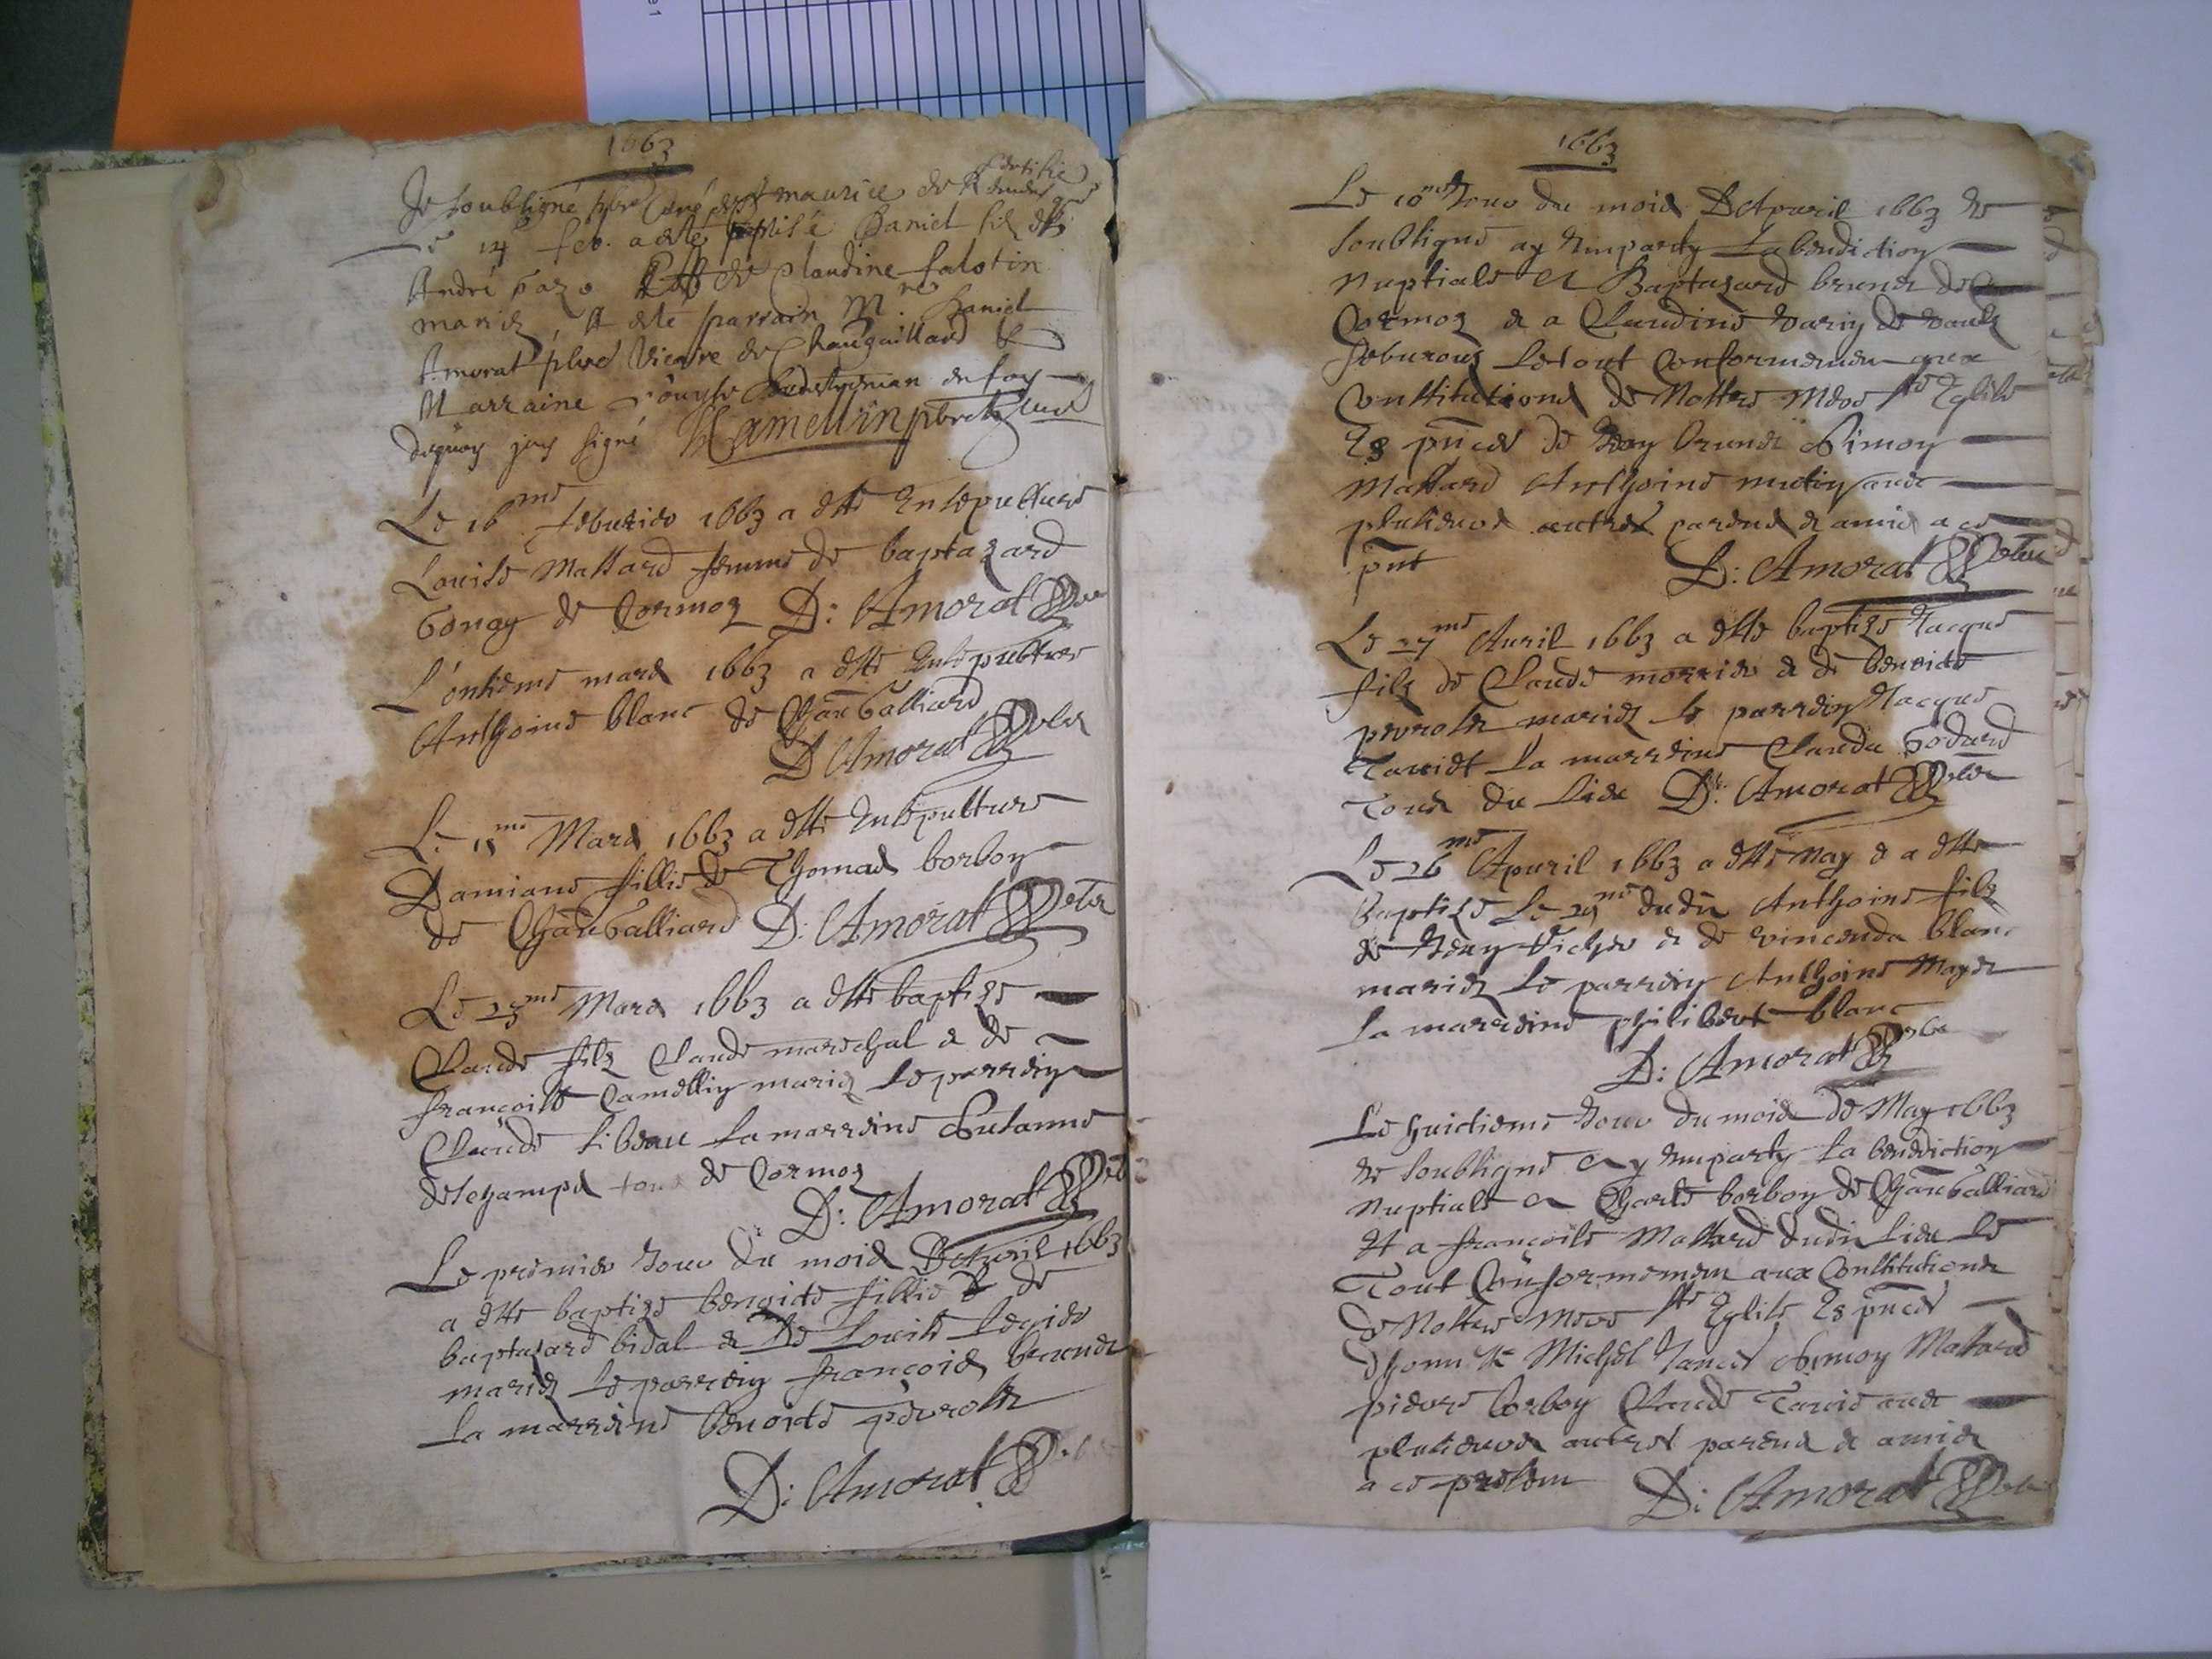 1663
Je soubsigné pbre curé de st maurice de certifie
14 feb. a esté baptisé Daniel filz de
André de Claudine falotin
mariez, A esté parrain Mre Daniel
Amorat pbre Vicaire de &
Marraine en foy
dequoy jay signé Kamellin pbre
Le 16me feburier 1663 a esté Ensepulturé
Louise Mattard femme de baptazard
Gonay de Cormoz D: Amorat
L'onsieme mars 1663 a esté Ensepulturé
Anthoine blanc de Changalliard
D Amorat
Le me Mars 1663 a esté Ensepulture
Damiane fillie de Thomas borbon
de Changalliard D: Amorat
Le 23me Mars 1663 a esté baptize
Claude filz Claude mareschal & de
françoise Camellin mariez le parrein
Claude Libeau La marreine Susanne
deschamps tous de Cormoz
D: Amorat
Le premier Jour du moid D'Apvril 1663
a esté baptize benoite fillie de
baptazard bidal & de Louise
mariez Le parrein françois brunet
La marreine benoite
D: Amorat
1663
Le 10me Jour du mois D'Apvril 1663 Je
soubsigne ay Imparty La benediction
Nuptiale A Baptazard brunet de
Cormoz & a Claudine de
Le tout Conformement aux
Constitutions de Nostre Mere ste Eglise
Es pnces de Jean brunet Simon
Mattard Anthoine avec
plusieurs autres parens & amis a ce
pnt D: Amorat
Le 27me Avril 1663 a esté baptize Jacque
filz de Claude morrier & de benoite
mariez Le parrein Jacque
La marreine Clauda Godard
Tous du Lieu D: Amorat
Le 26me Apvril 1663 a esté nay & a esté
Baptize Le me dudit Anthoine filz
de Jean & de vincenda blanc
mariez Le parrein Anthoine
La marreine philiberte blanc
D: Amorat
Le huictieme Jour du mois de May 1663
Je soubsigne Ay Imparty La benediction
Nuptiale A Charle borbon de Changalliard
Et a françoise Mattard dudit Lieu Le
Tout Conformement aux Constitutions
de Nostre Mere ste Eglise Es pnces
Michel Simon Mattard
pierre borbon Claude avec
plusieurs autres parens & amis
a ce presens D: Amorat